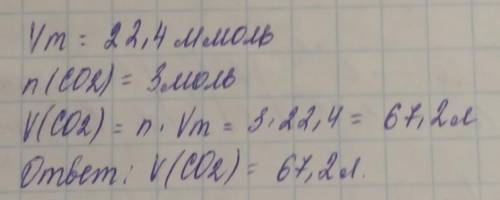 Vm = 22,4 л/моль
n(CO2) = 3 моль
V(CO2) = n · Vm = 3·22,4 = 67,2 л
Ответ: V(CO2) = 67,2 л.